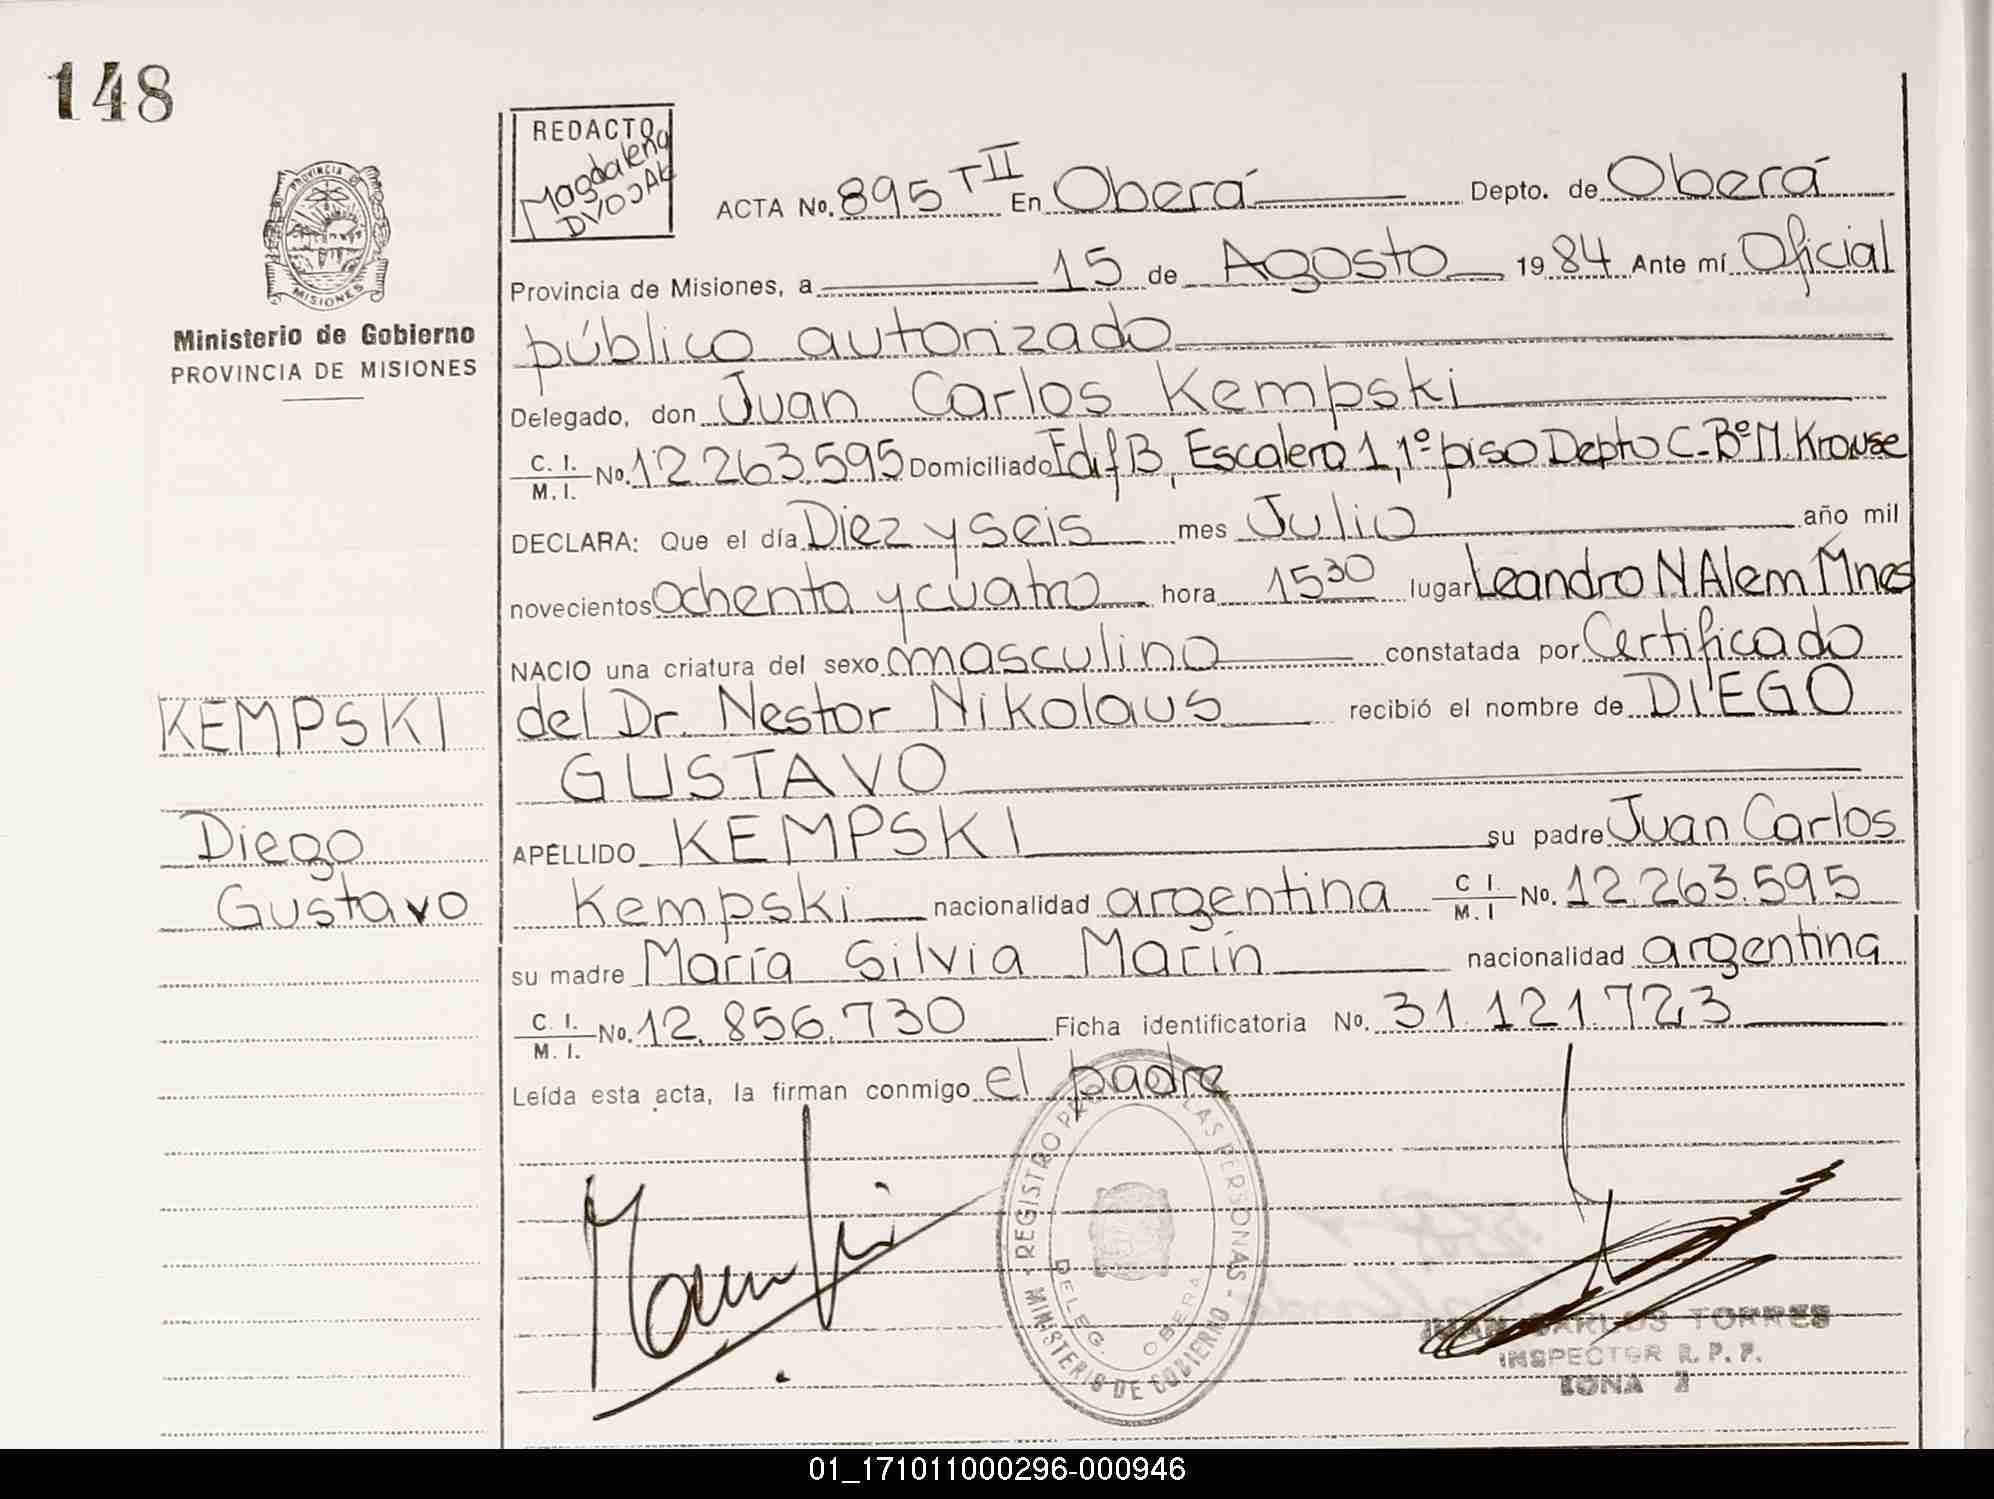 148
REDACTO
Magdalena
DVOJAK
PROVINCIA DE
MISIONES
Ministerio de Gobierno
PROVINCIA DE MISIONES
ACTA No. 895 T II En Oberá Depto. de Oberá
Provincia de Misiones, a 15 de Agosto 1984 Ante mí Oficial
público autorizado
Delegado, don Juan Carlos Kempski
C. I. / M. I. No. 12.263.595 Domiciliado Edif B, Escalera 1, 1º piso Depto C-Bº M. Krause
DECLARA: Que el día Diez y seis mes Julio año mil
novecientos ochenta y cuatro hora 15 30 lugar Leandro N Alem Mnes
NACIO una criatura del sexo masculino constatada por Certificado
del Dr. Nestor Nikolaus recibió el nombre de DIEGO
GUSTAVO
APELLIDO KEMPSKI su padre Juan Carlos
Kempski nacionalidad argentina C I. / M. I No. 12.263.595
su madre María Silvia Marín nacionalidad argentina
C. I. / M. I. No. 12.856.730 Ficha identificatoria No. 31.121.723
Leída esta acta, la firman conmigo el padre
KEMPSKI
Diego
Gustavo
REGISTRO PROV. LAS PERSONAS
MINISTERIO DE GOBIERNO
DELEG. OBERA
JUAN CARLOS TORRES
INSPECTOR R. P. P.
ZONA
01_171011000296-000946